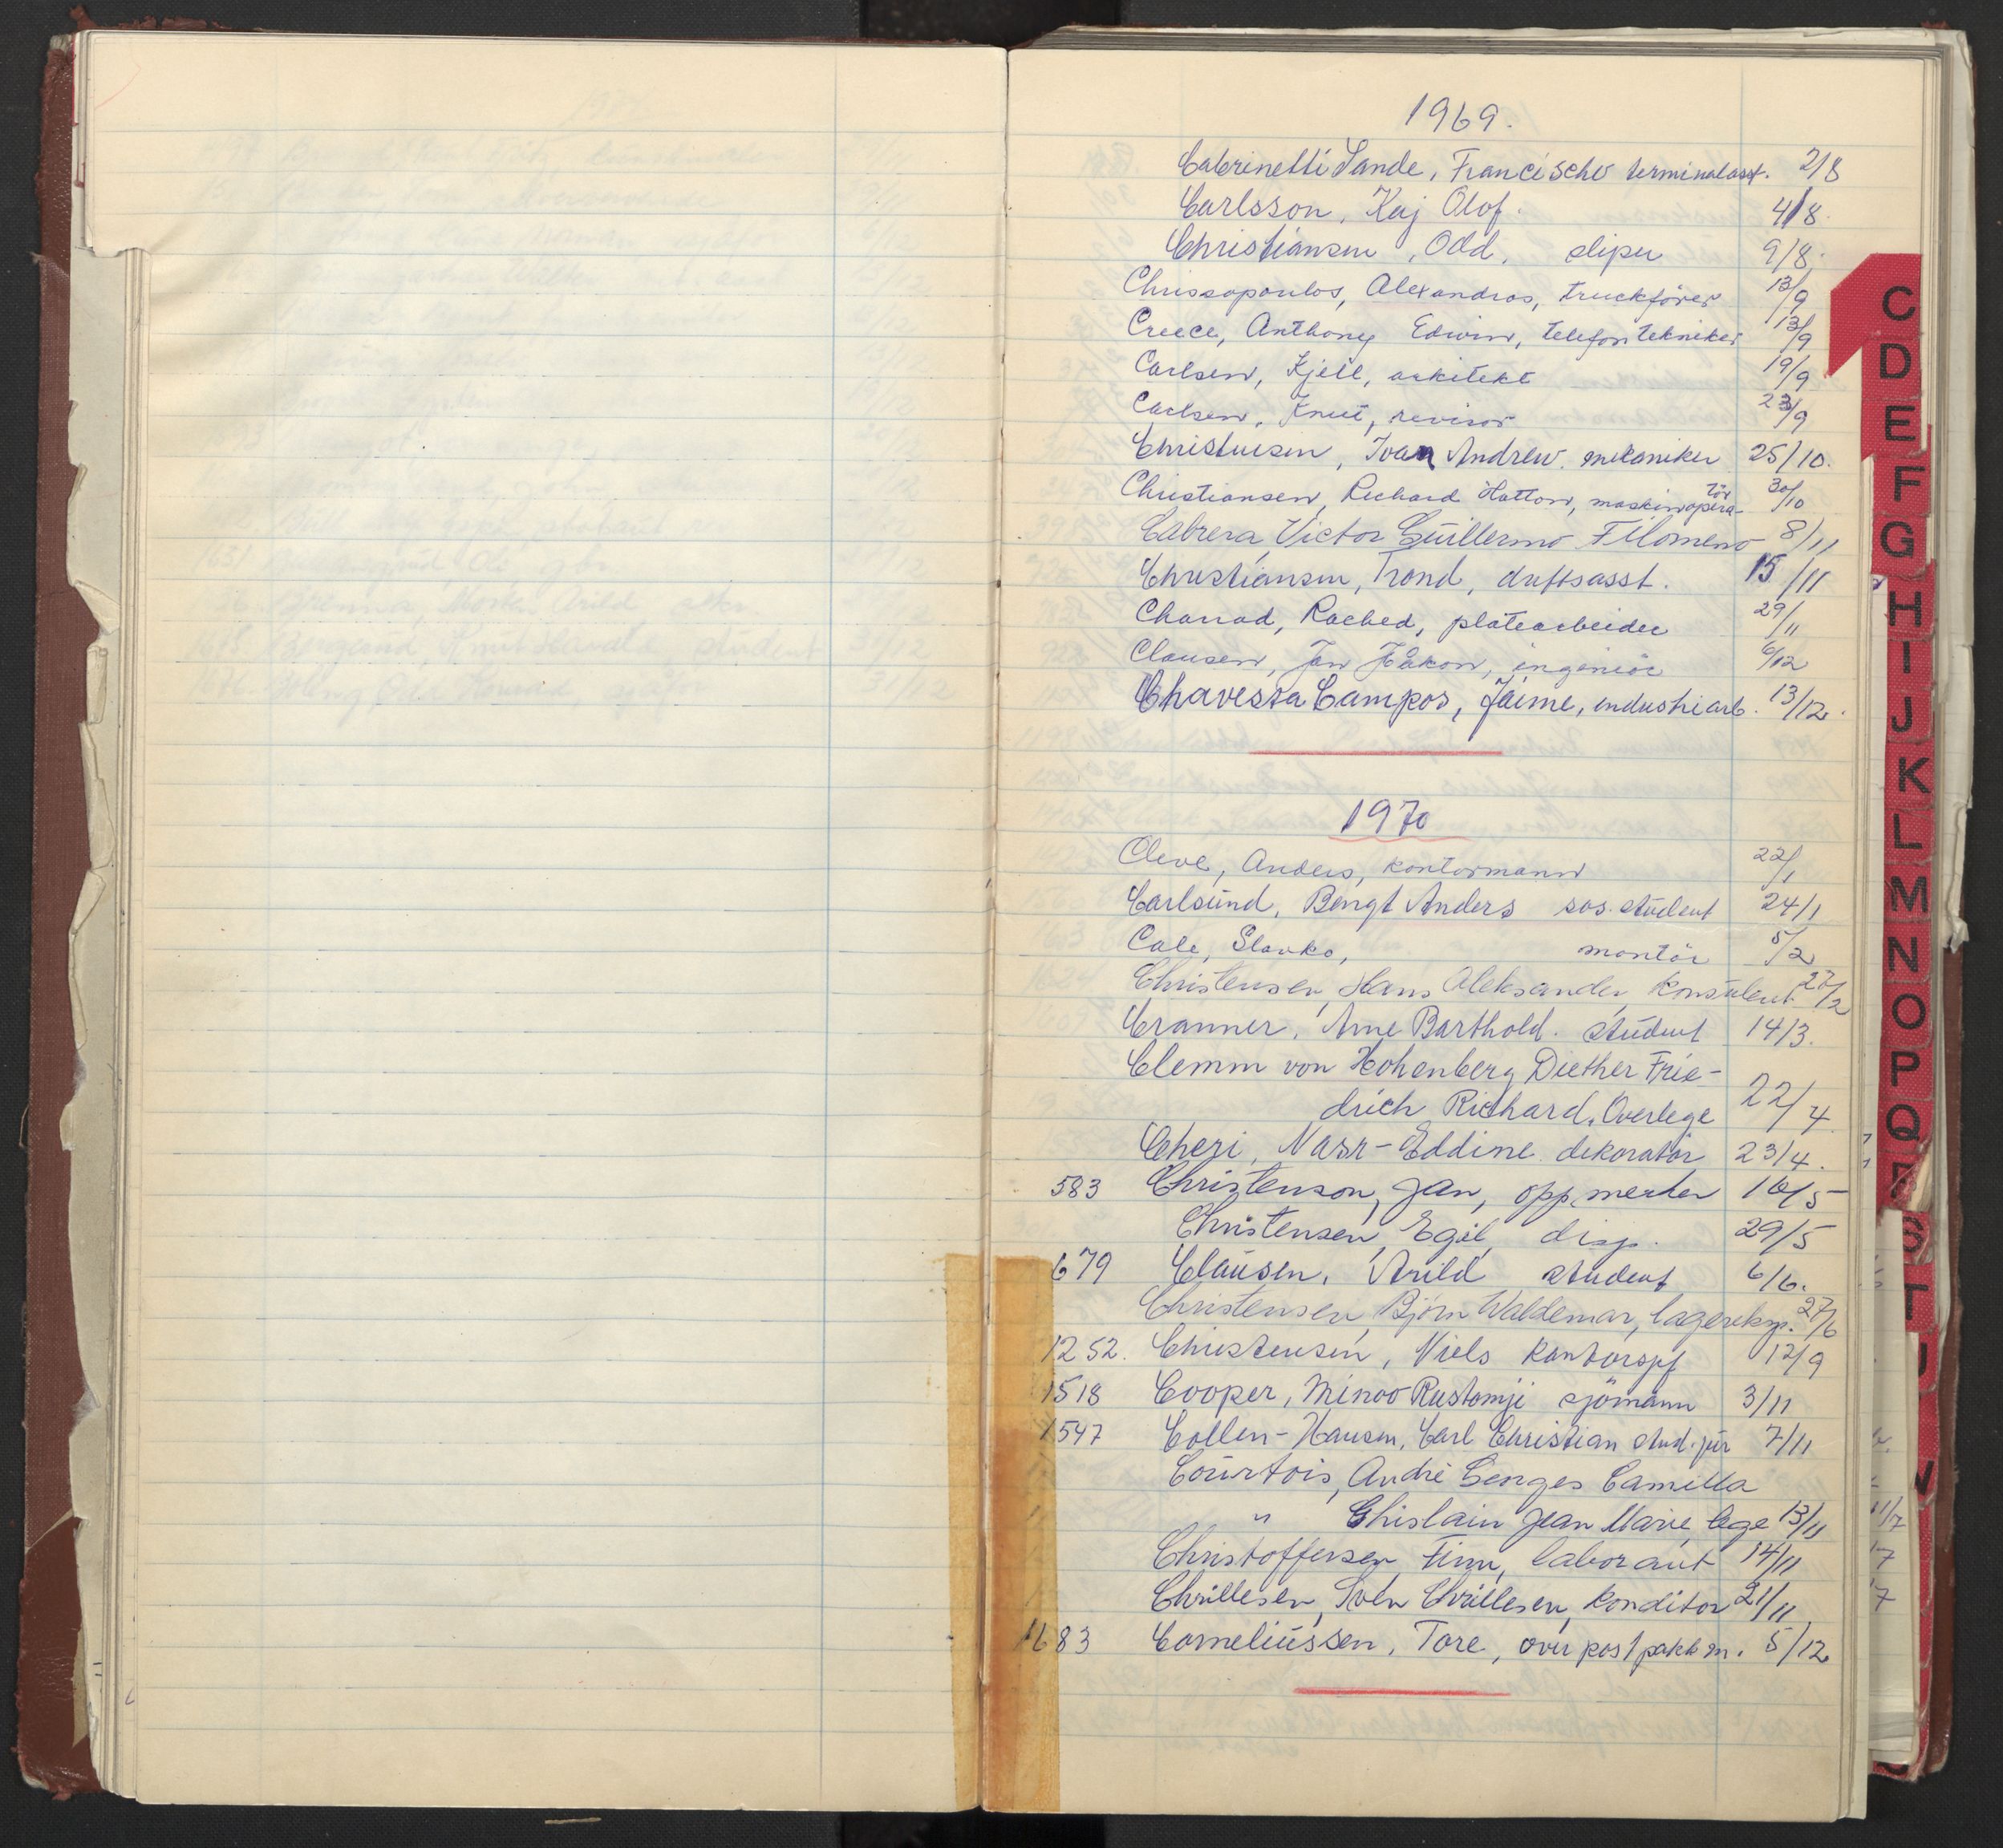 1969.
Cabrinetti Sande, Francischo terminalasst. 2/8
Carlsson, Kaj Olof. 4/8.
Christiansen, Odd, sliper 9/8.
Chrissopoulos, Alexandros, truckförer 13/9
Creece, Anthony Edwin, telefontekniker 13/9
Carlsen, Kjell, arkitekt 19/9
Carlsen, Knut, revisor 23/9
Christensen, Ivan Andrew. mekaniker 25/10.
Christiansen, Richard Hatton, maskinopera-tör 30/10
Cabrera, Victor Guillermo Filomeno 8/11
Christiansen, Trond, driftsasst. 15/11
Charrad, Rached, platearbeider 29/11
Clausen, Jan Håkon, ingeniör 6/12
Chavesta Campos, Jaime, industriarb. 13/12.
1970
Cleve, Anders, kontormann 22/1
Carlsund, Bengt Anders sos. student 24/1
Cale, Slavko, montör 5/2
Christensen, Hans Aleksander, konsulent 27/2
Cranner, Arne Barthold. student 14/3.
Clemm von Hohenberg, Diether Frie-
drich Richard. Overlege 22/4
Chezi, Nasr-Eddine dekoratör 23/4.
583 Christenson, Jan, opp.merker 16/5
Christensen, Egil, disp. 29/5
679 Clausen, Arild student 6/6.
Christensen, Björn Waldemar, lagereksp. 27/6
1252. Christensen, Niels kontorspf 12/9
1518 Cooper, Minoo Rustomji sjömann 3/11
1547 Collen-Hansen, Carl Christian stud. jur 7/11
Courtois, André Georges Camilla
" Ghislain Jean Marie, lege 13/11
Christoffersen, Finn, laborant 14/11
Chrillesen, Sven Chrillesen, konditor 21/11
1683 Corneliussen, Tore, over postpakkm. 5/12
C
D
E
F
G
H
I
J
K
L
M
N
O
P
Q
S
T